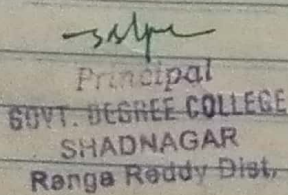 Principal
GOVT. DEGREE COLLEGE
SHADNAGAR
Ranga Reddy Dist,